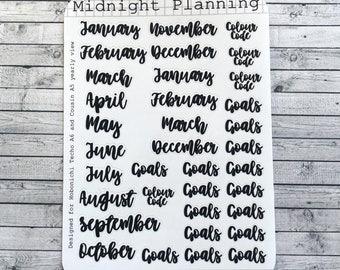 Midnight Planning
January November Colour
code
February December Colour
code
March January Colour
code
April February Goals
May March Goals
June December Goals
July Goals Goals Goals
August Colour
code Goals Goals
September Goals Goals
October Goals Goals Goals
Goals Goals
Designed for Hobonichi Techo A6 and Cousin A5 yearly view